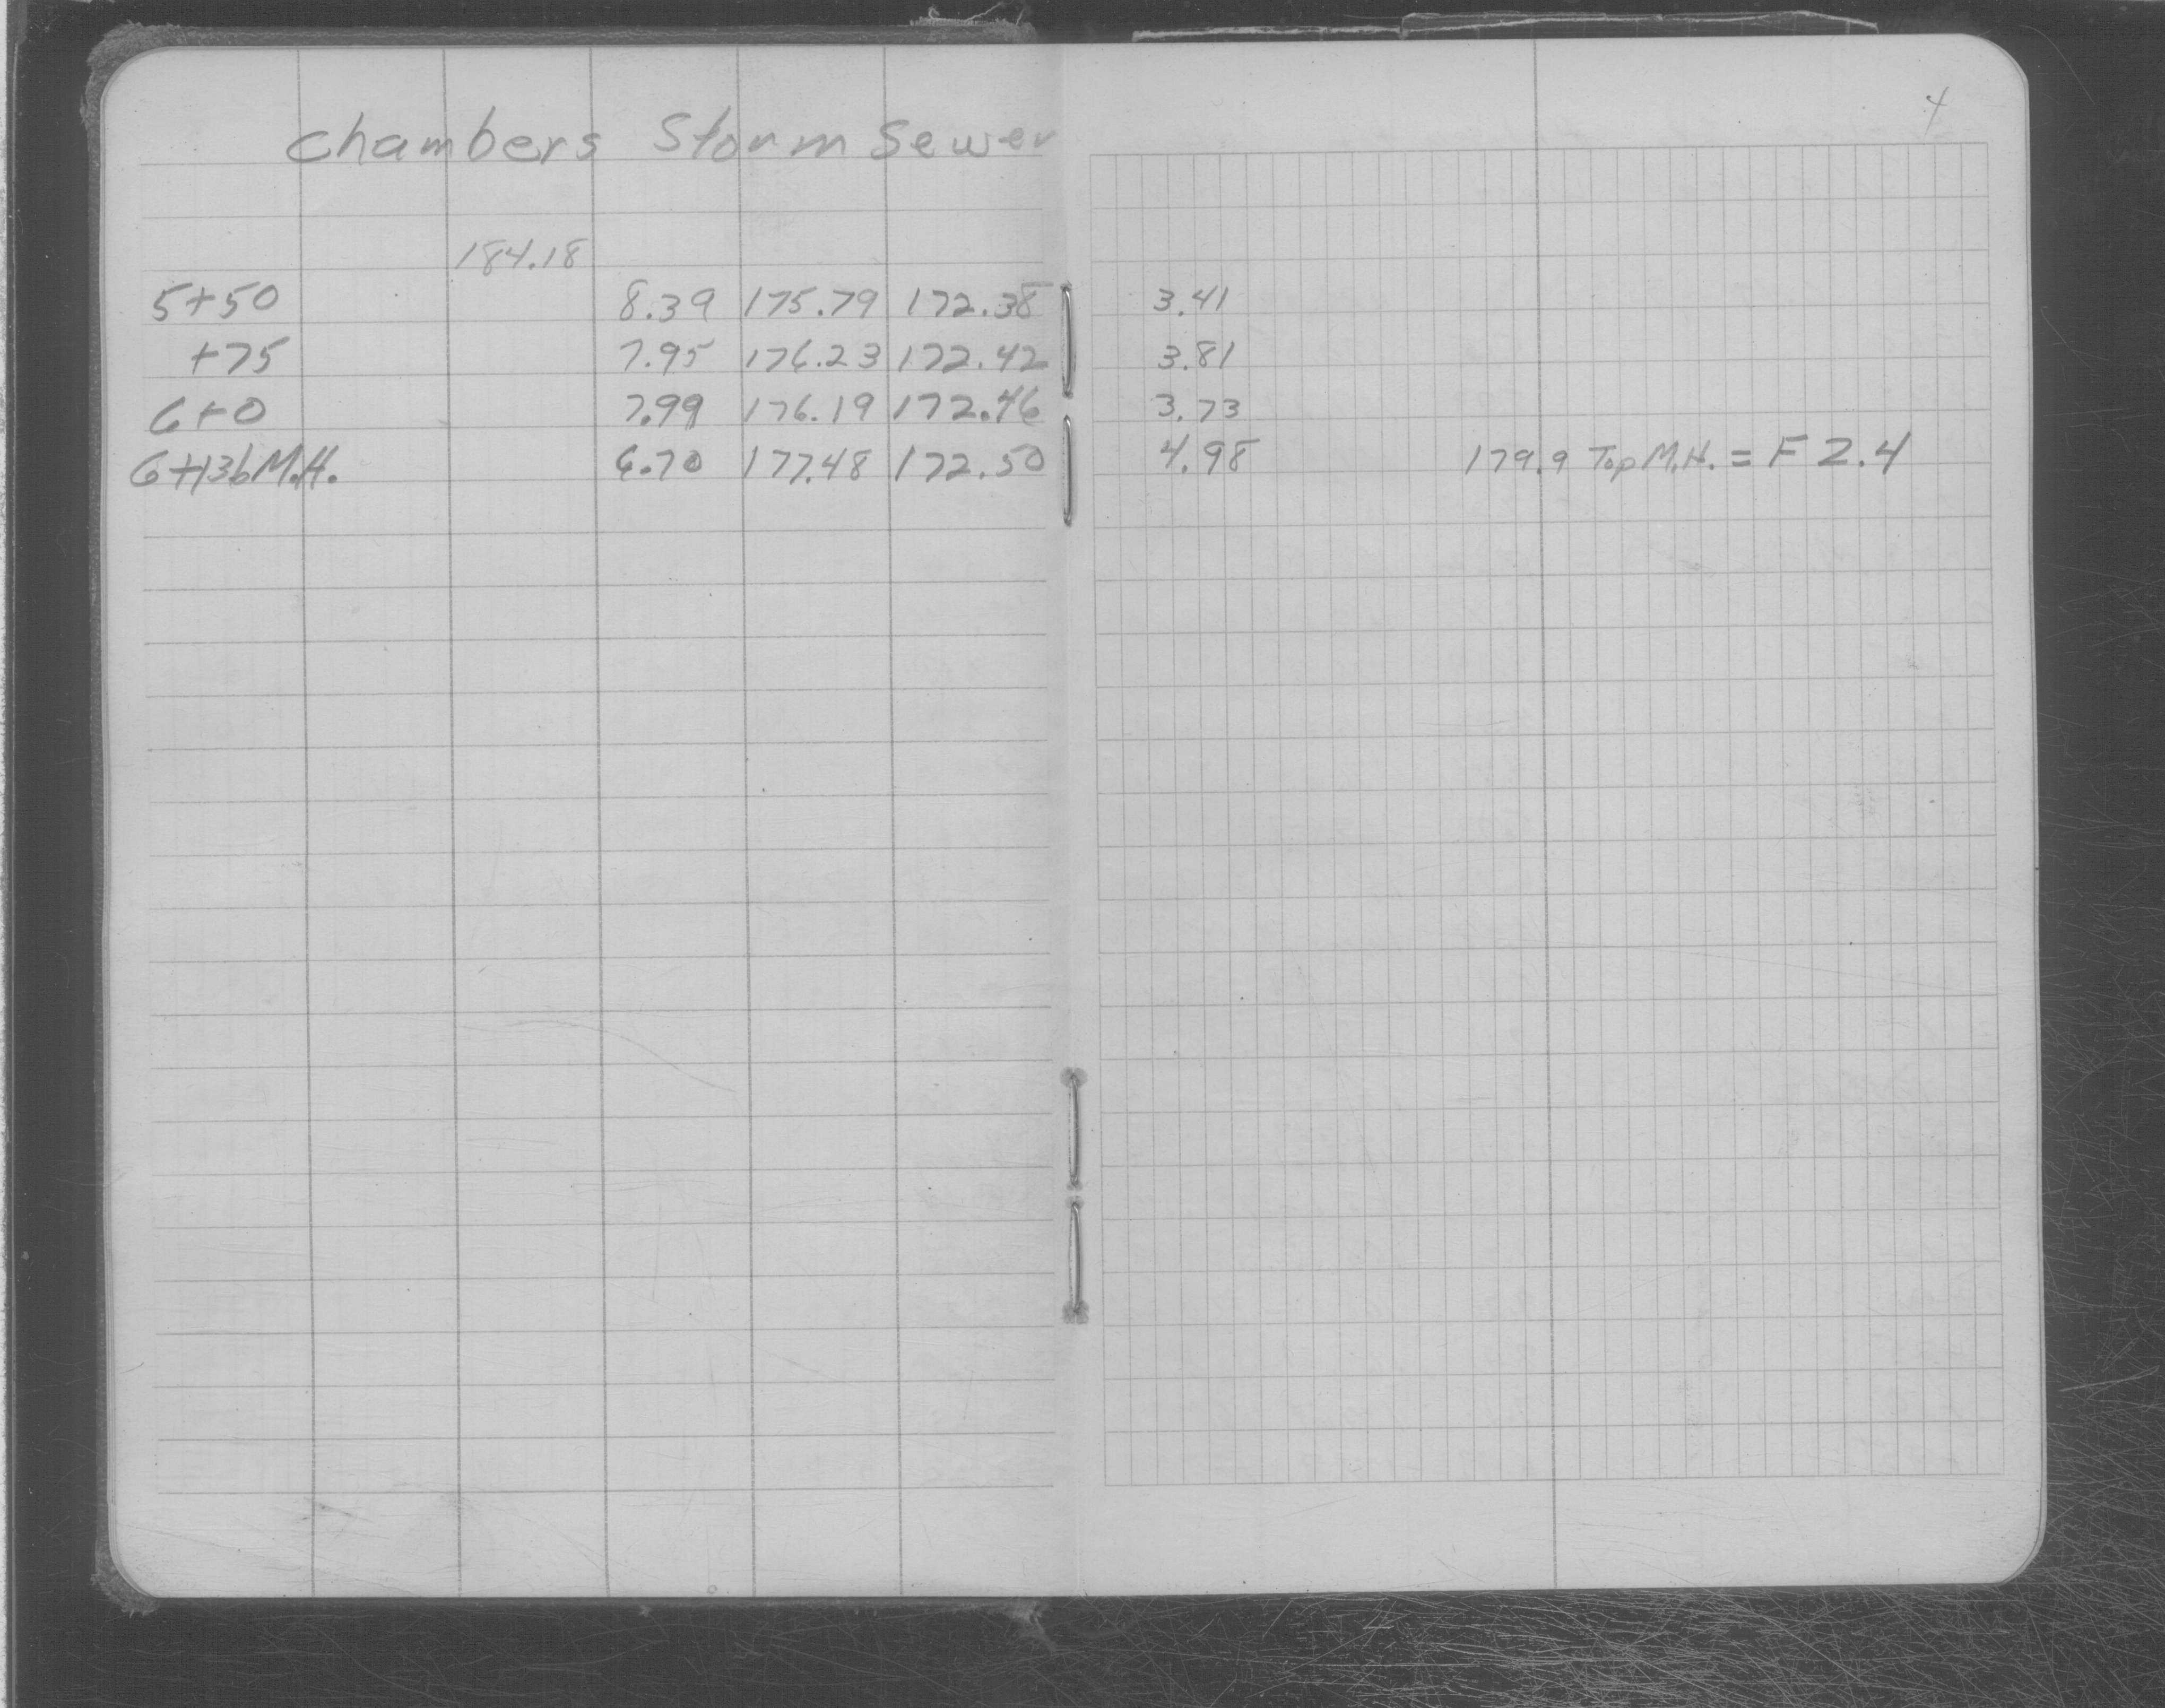 4
chambers Storm Sewer
184.18
5+50 8.39 175.79 172.38 3.41
+75 7.95 176.23 172.42 3.81
6+0 7.99 176.19 172.46 3.73
6+136 M.H. 6.70 177.48 172.50 4.98 179.9 Top M.H. = F 2.4